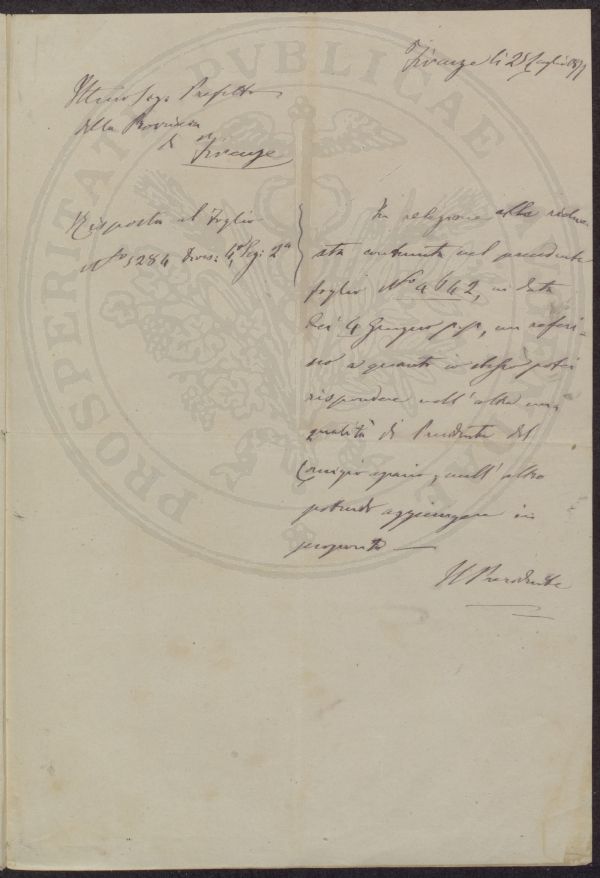 Firenze li 25 Luglio 1871
Illmo Sigr Prefetto
della Provincia
di Firenze
Risposta al Foglio
No 5284 Divis: 4a Sez: 2a
In relazione alla richie-
sta contenuta nel precedente
foglio No 4642, in data
dei 4 Giugno pp, mi riferi-
sco a quanto io stesso potei
rispondere nell'altra mia
qualità di Presidente del
Comizio agrario, null'altro
potendo aggiungere in
proposito —
Il Presidente
PROSPERITATI PUBLICAE